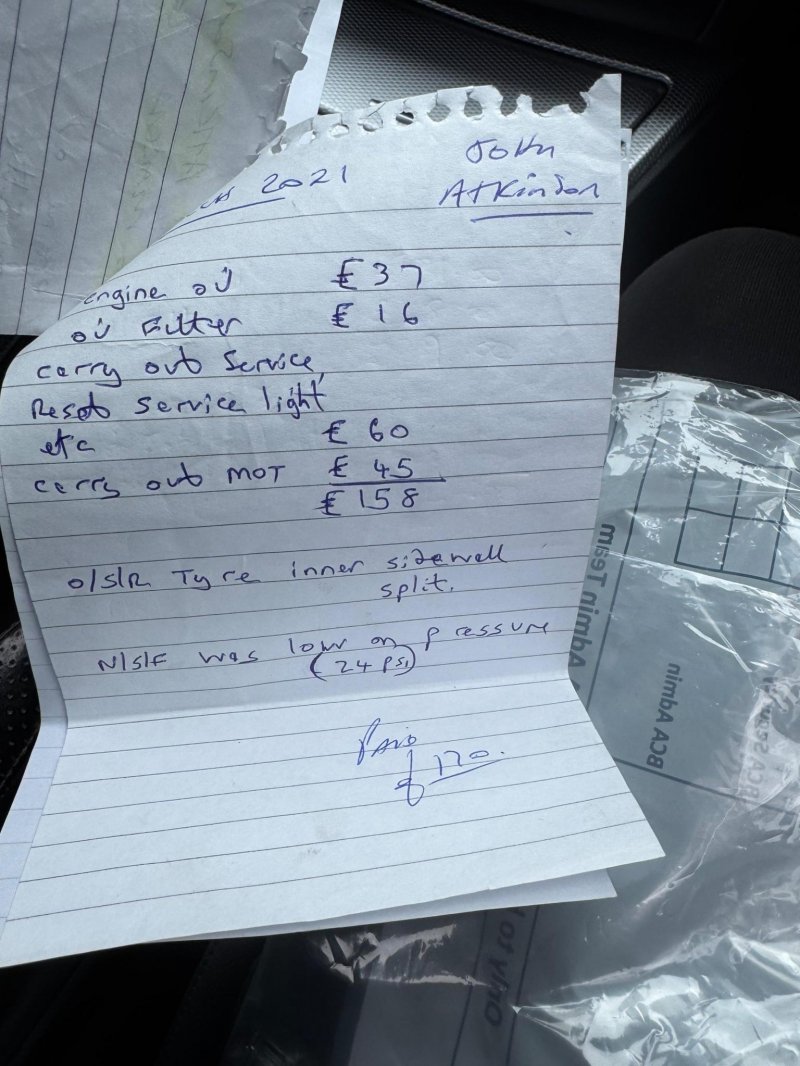 John
Atkinson
2021
engine oil £37
oil Filter £16
carry out Service,
Reset Service light
etc £60
carry out MOT £45
£158
O/S/R Tyre inner sidewall
split.
N/S/F was low on pressure
(24 PSI)
Paid
£170.
Admin Team
BCA Admin
Only to